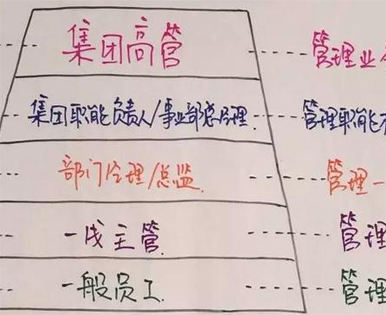 集团高管
管理业
集团职能负责人/事业部总经理
管理职能
部门经理/总监
管理一
一线主管
管理
一般员工
管理